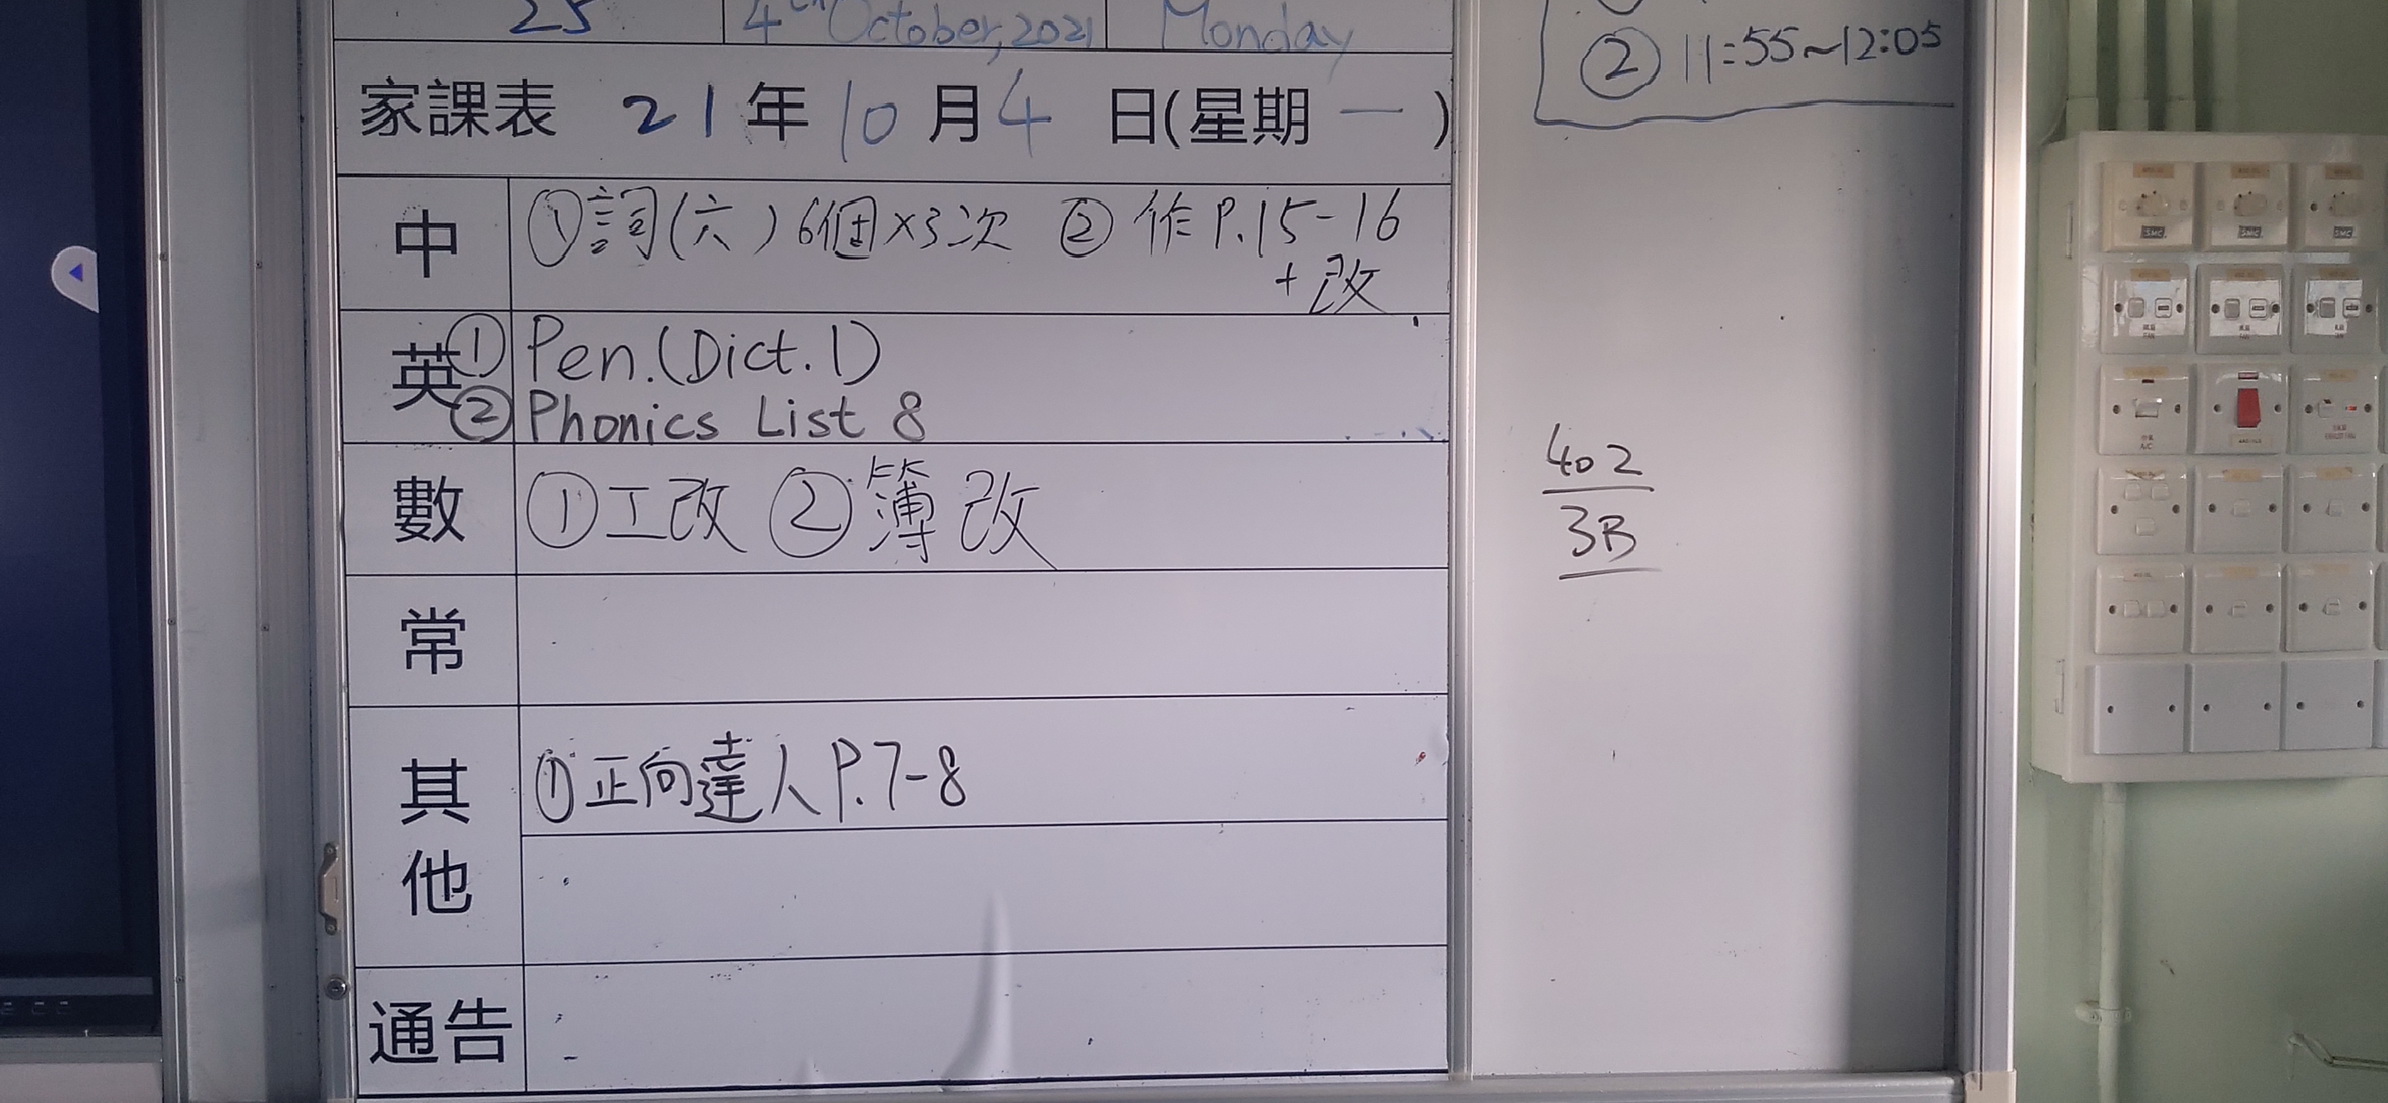 25 4th October, 2021 Monday
家課表 21年10月4日(星期一)
中 ①詞(六)6個×3次 ②作P.15-16
+改
英 ①Pen.(Dict.1)
②Phonics List 8
數 ①工改 ②簿改
常
其他 ①正向達人P.7-8
通告
② 11:55~12:05
402
3B